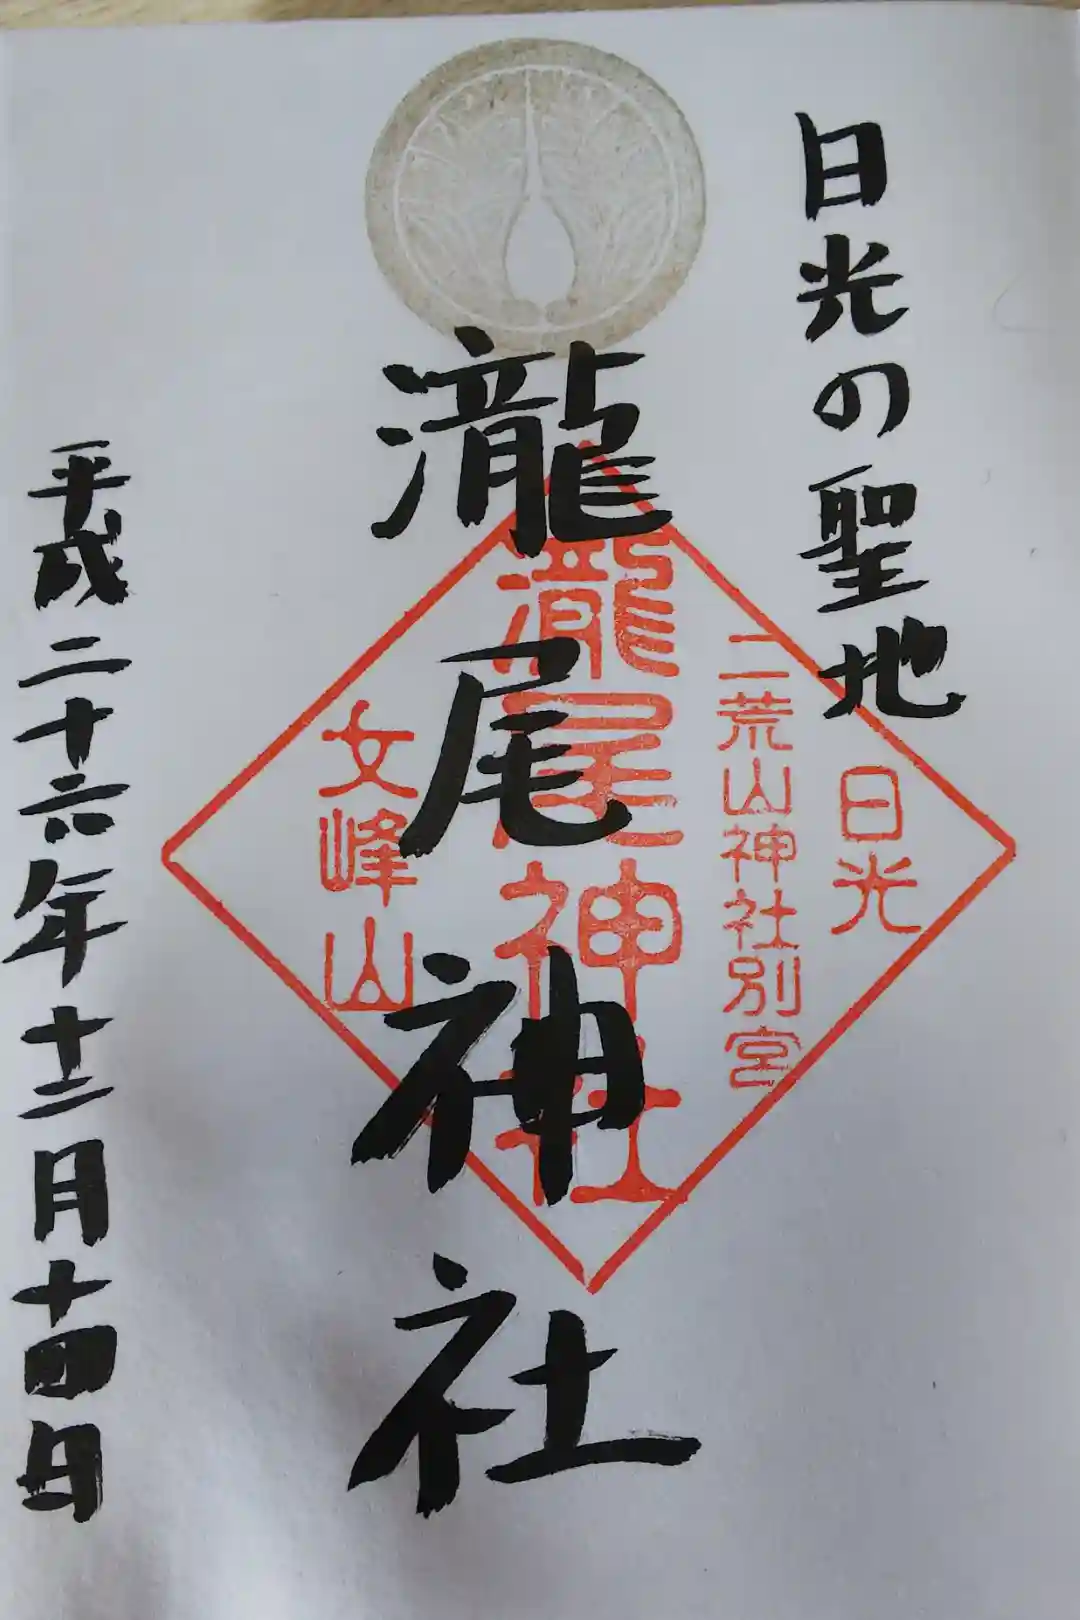 日光の聖地
瀧尾神社
平成二十六年十二月十四日
日光
二荒山神社別宮
瀧尾神社
女峰山